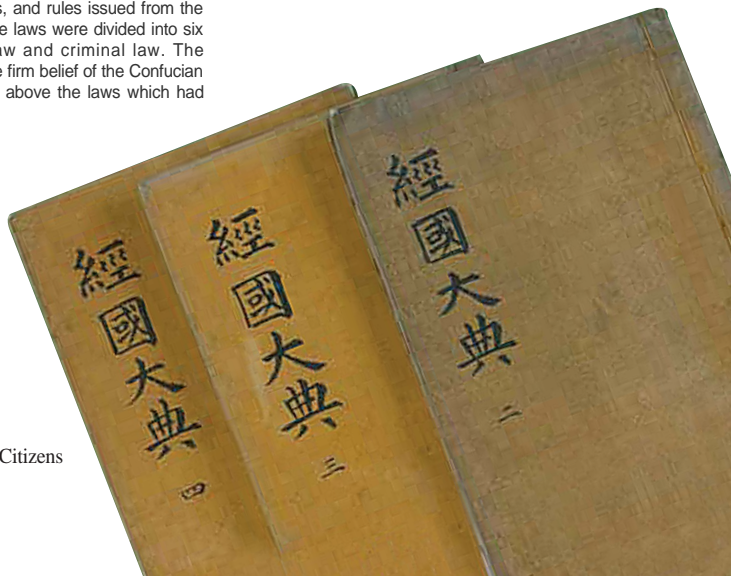 s, and rules issued from the
e laws were divided into six
aw and criminal law. The
e firm belief of the Confucian
above the laws which had
經國大典 四
經國大典 三
經國大典 二
Citizens